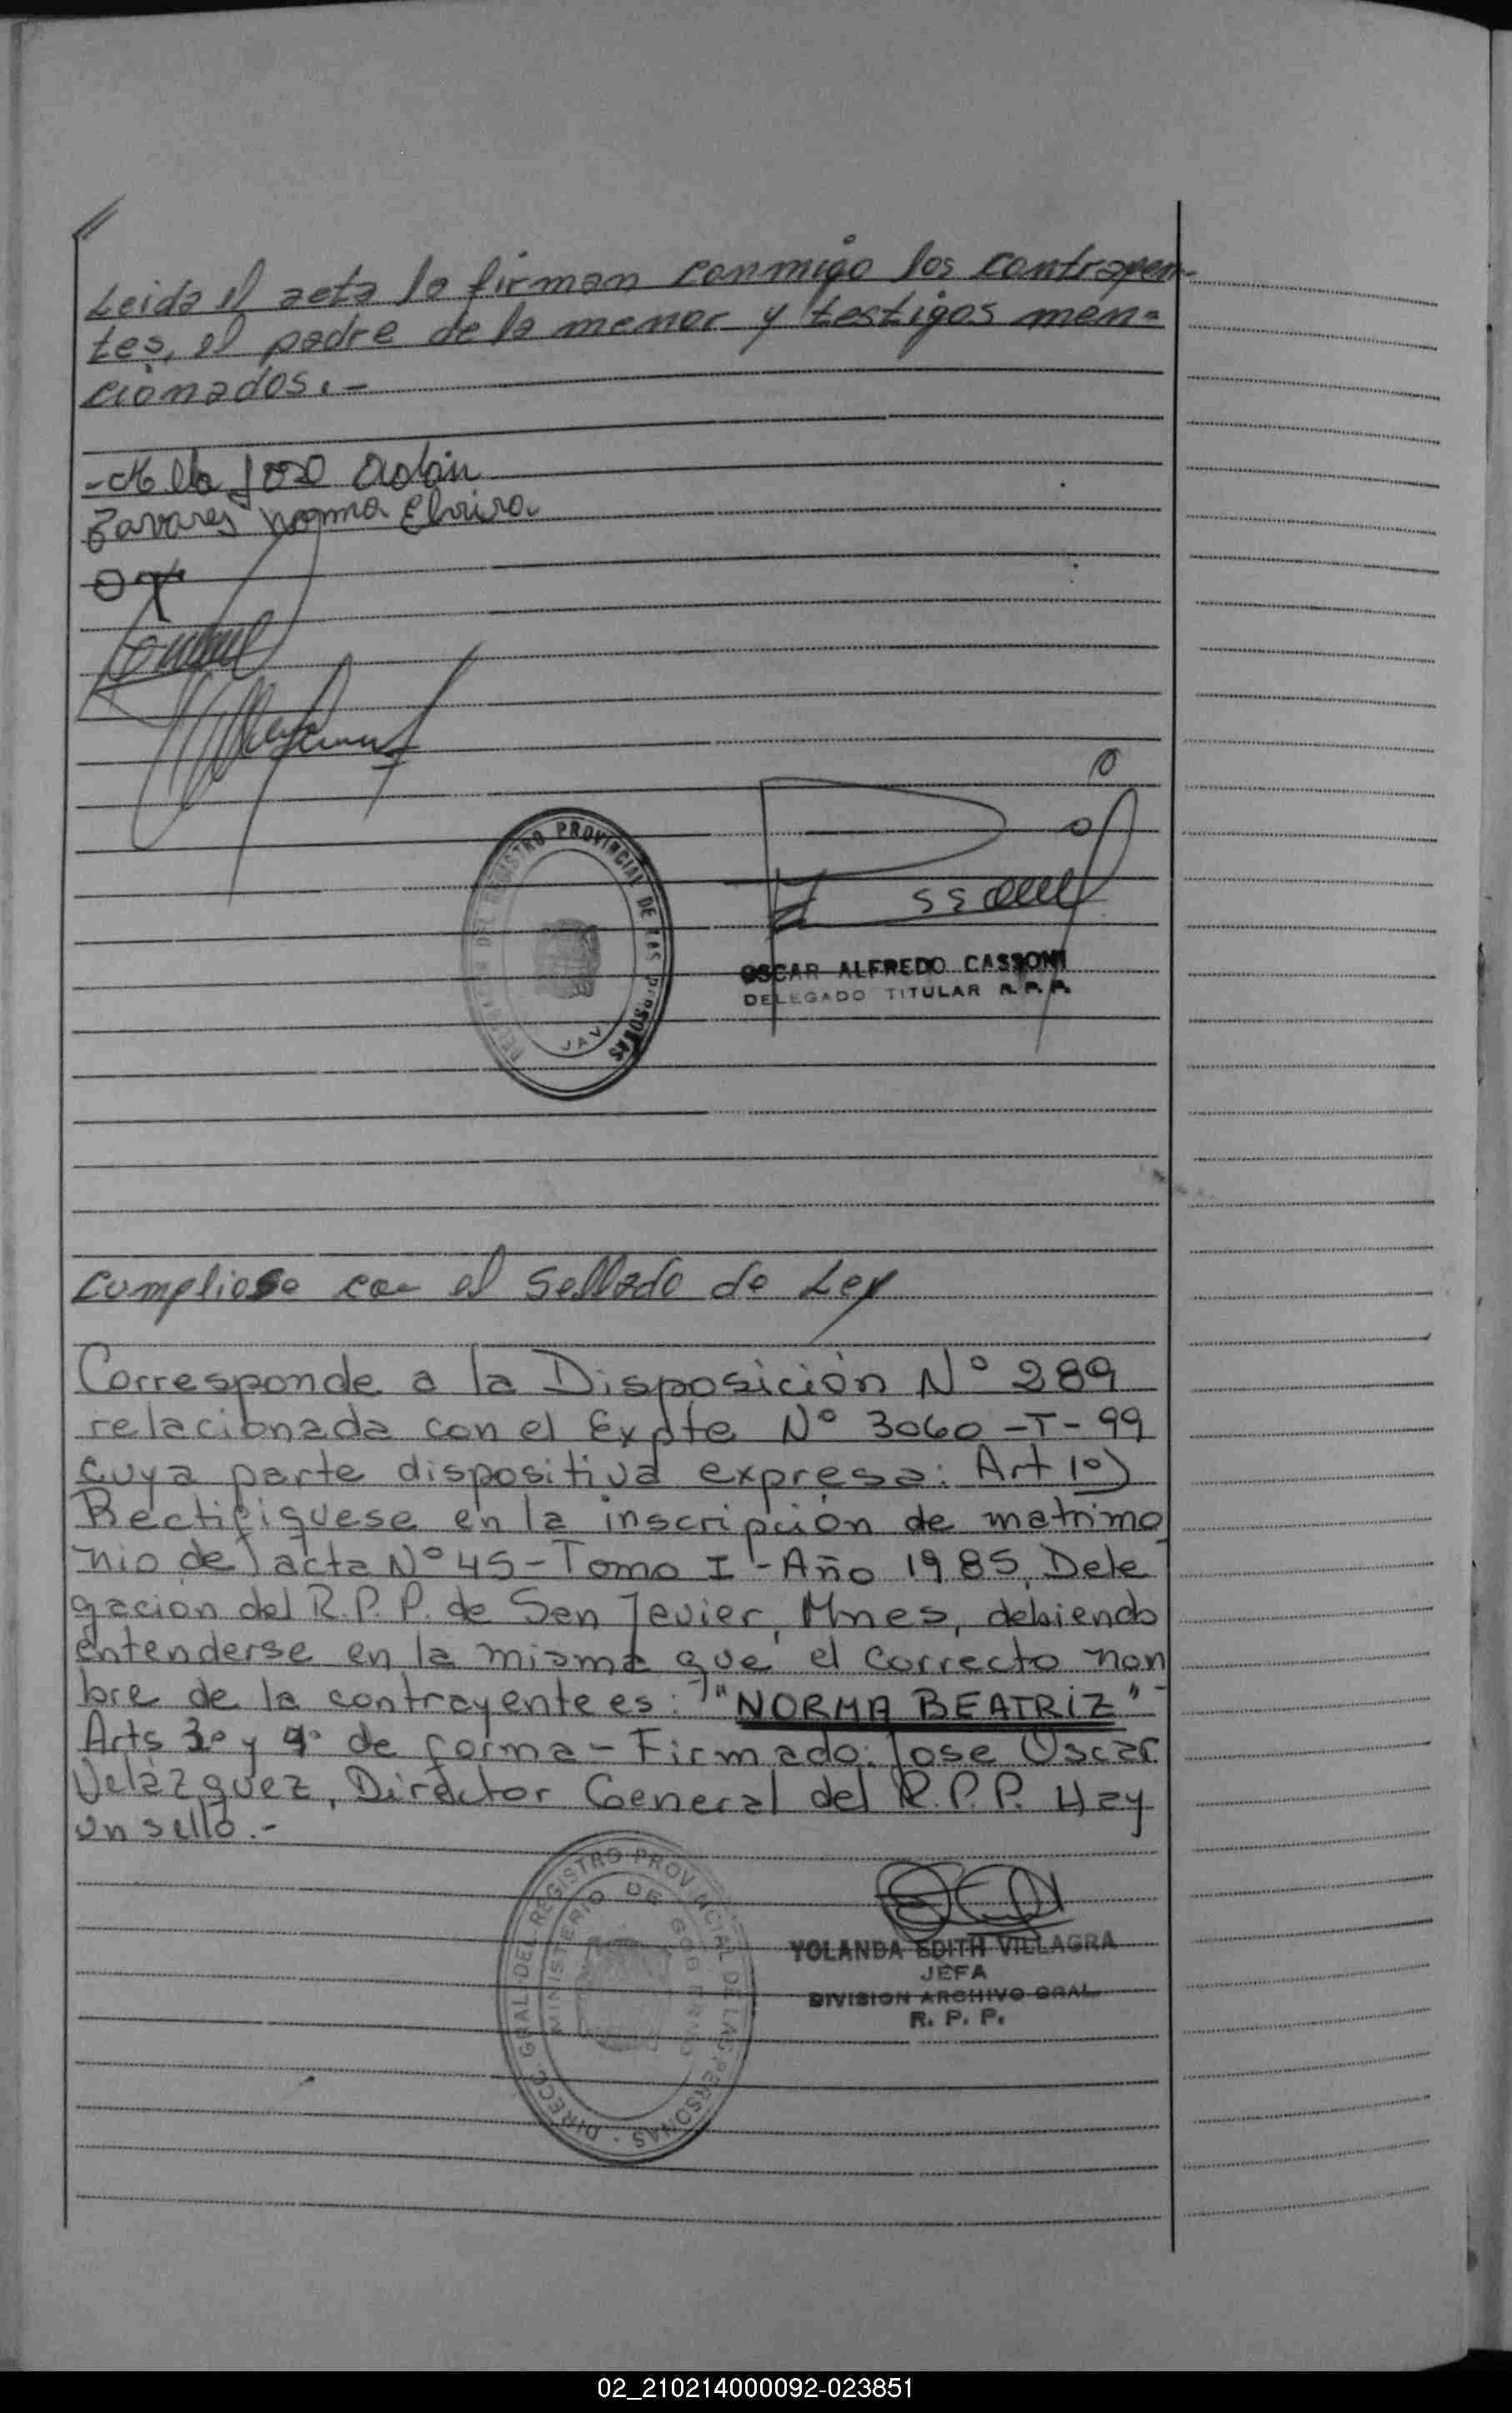 Leida el acta la firman conmigo los contrayen-
tes, el padre de la menor y testigos men=
cionados.-
José Adán
Tavares Norma Elvira
OSCAR ALFREDO CASSONI
DELEGADO TITULAR R. P. P.
REGISTRO PROVINCIAL DE LAS PERSONAS
JAV
Cumpliose con el Sellado de Ley
Corresponde a la Disposición Nº 289
relacionada con el Expte Nº 3060-T-99
cuya parte dispositiva expresa: Art 1º)
Rectifiquese en la inscripción de matrimo
nio del acta Nº 45-Tomo I-Año 1985, Dele
gacion del R.P.P. de San Javier, Mnes, debiendo
entenderse en la misma que el correcto nom
bre de la contrayente es: "NORMA BEATRIZ"
Arts 3º y 4º de forma-Firmado: Jose Oscar
Velázquez, Director General del R.P.P. Hay
un sello.-
DIRECC. GRAL. DEL REGISTRO PROVINCIAL DE LAS PERSONAS
MINISTERIO DE GOBIERNO
YOLANDA EDITH VILLAGRA
JEFA
DIVISION ARCHIVO GRAL.
R. P. P.
02_210214000092-023851